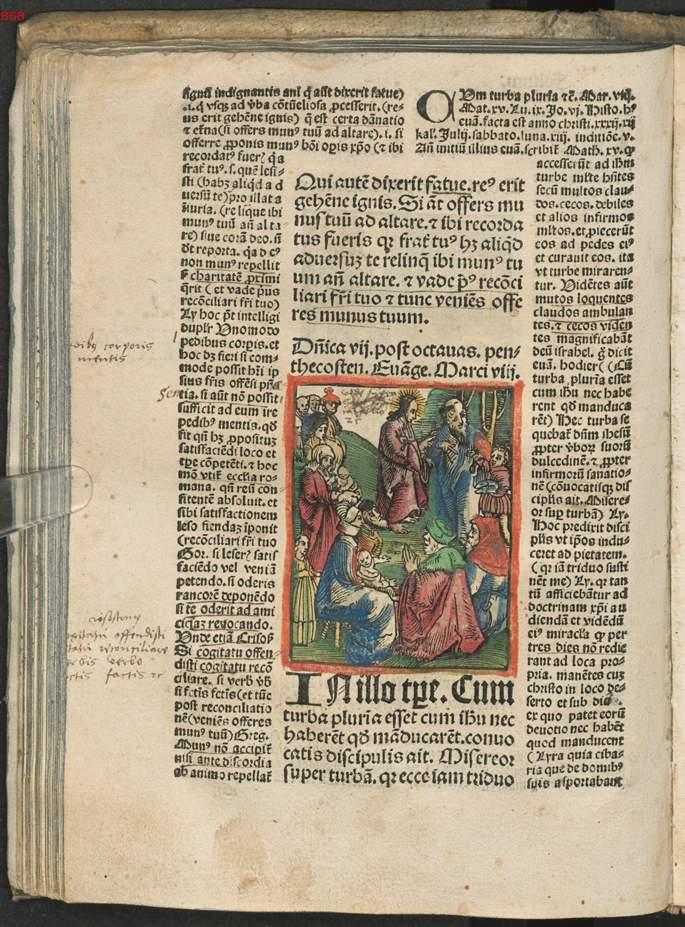 868
signū indignantis anī q̄ asst dixerit fatue)
.i. q̄ vsqz ad v̄ba cōtūeliosa ꝓcesserit. (re⁹
us erit gehēne ignis) q̄ est certa dānatio
⁊ etna (si offers mun⁹ tuū ad altare) .i. si
offerre ꝓponis mun⁹ boni oꝑis xp̄o (⁊ ibi
recordat⁹ fuer̄) q̄a
frat̄ tu⁹. s. quē lesi⸗
sti (habz aliqd a d
uersū te) pro illat a
iniuria. (relique ibi
mun⁹ tuū an̄ al ta
re) siue corā deo. n̄
dt reporta. q̄a d e⁹
non mun⁹ repellit
s̄ charitatē ꝓximi
q̄rit (et vade pri⁹
recōciliari fr̄i tuo)
Ly hoc p̄t intelligi
duplr̄ Vnomodo
pedibus corꝑis. et
hoc dz fieri si com⸗
mode possit hr̄i ip
sius fr̄is offēsi p̄n̄
tia. si aūt nō possit
sufficit ad eum ire
pedib⁹ mentis. qd
fit qn̄ hz ꝓpositū
satisfaciēdi loco et
tꝑe cōpetēti. ⁊ hoc
mō vtit̄ eccl̄ia ro⸗
mana. qn̄ reū con
fitentē absoluit. et
sibi satisfactionem
leso fiendaz iponit
(recōciliari fr̄i tuo)
Gor. si leser̄ satis
faciēdo vel veniā
petendo. si oderis
rancorē deponēdo
si te oderit ad ami
ciçiaz reuocando.
Vnde etiā Crisos̄
Si cogitatu offen⸗
disti cogitatu recō
ciliare. si verb⁹ v̄b
si fct̄is fct̄is (et tūc
post reconciliatio
nē (veniēs offeres
mun⁹ tuū) Greg.
Mun⁹ nō accipit̄
nisi ante discordia
ab animo repellat̄
corporis
mentis
offendisti
reconciliare
verbo
factis
Qui autē dixerit fatue. re⁹ erit
gehēne ignis. Si āt offers mu
nus tuū ad altare. ⁊ ibi recorda
tus fueris qꝛ frat̄ tu⁹ hz aliqd
aduersuz te relinq̄ ibi mun⁹ tu
um an̄ altare. ⁊ vade p̄⁹ recōci
liari fr̄i tuo ⁊ tunc veniēs offe
res munus tuum.
Dn̄ica vij. post octauas. pen⸗
thecosten. Euāge. Marci viij.
IN illo tꝑe. Cum
turba plurīa esset cum ihū nec
haberēt qd māducarēt. conuo
catis discipulis ait. Misereor
super turbā. qꝛ ecce iam triduo
CVm turba plurīa ⁊c̄. Mar. viij.
Mat. xv. Lu. ix. Jo. vj. Histo. h⁹
euā. facta est anno christi. xxxij. xij
kal. Julij. sabbato. luna. xiij. inditiōe. v.
An̄ initiū illius euā. scribit̄ Math. xv. qꝛ
accesserūt ad ihm
turbe ml̄te hn̄tes
secū multos clau⸗
dos. cecos. debiles
et alios infirmos
mltos. et ꝓiecerūt
eos ad pedes ei⁹
et curauit eos. ita
vt turbe miraren⸗
tur. Vidētes aūt
mutos loquentes
claudos ambulan
tes. ⁊ cecos viden
tes magnificabāt
deū israhel. q̄ dicit
euā. hodier̄ (Cū
turba plurīa esset
cum ihū nec habe
rent qd manduca
rēt) Hec turba se
quebat̄ dn̄m ihesū
ꝓpter v̄bor̄ suorū
dulcedinē. ⁊ ꝓpter
infirmorū sanatio⸗
nē (cōuocatisqz dis
cipl̄is ait. Misere⸗
or sup turbā) Ly.
Hoc predixit disci
pl̄is vt ip̄os indu⸗
ceret ad pietatem.
(qꝛ iā triduo susti
nēt me) Ly. qꝛ tan
tū afficiebātur ad
doctrinam xp̄i au
diendā et vidēdū
ei⁹ miracl̄a qꝛ per
tres dies nō redie
rant ad loca pro⸗
pria. manētes cuz
christo in loco de⸗
serto et sub dio.
ex quo patet eorū
deuotio nec habēt
quod manducent
(Lyra quia ciba⸗
ria que de domib⁹
suis asportabant